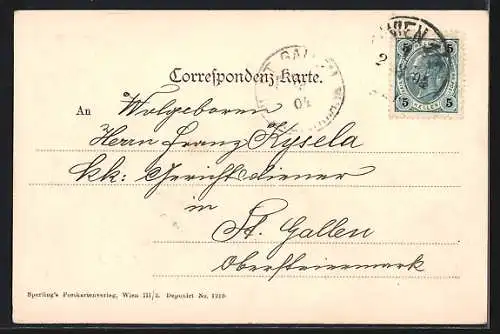 WIEN
5 5
5 HELLER 5
ST. GALLEN
04
Correspondenz-Karte.
An Wolgeboren
Herrn Franz Kysela
kk: Gerichtsdiener
in
St. Gallen
Obersteiermark
Sperling's Postkartenverlag, Wien III/3. Deponirt No. 1219.